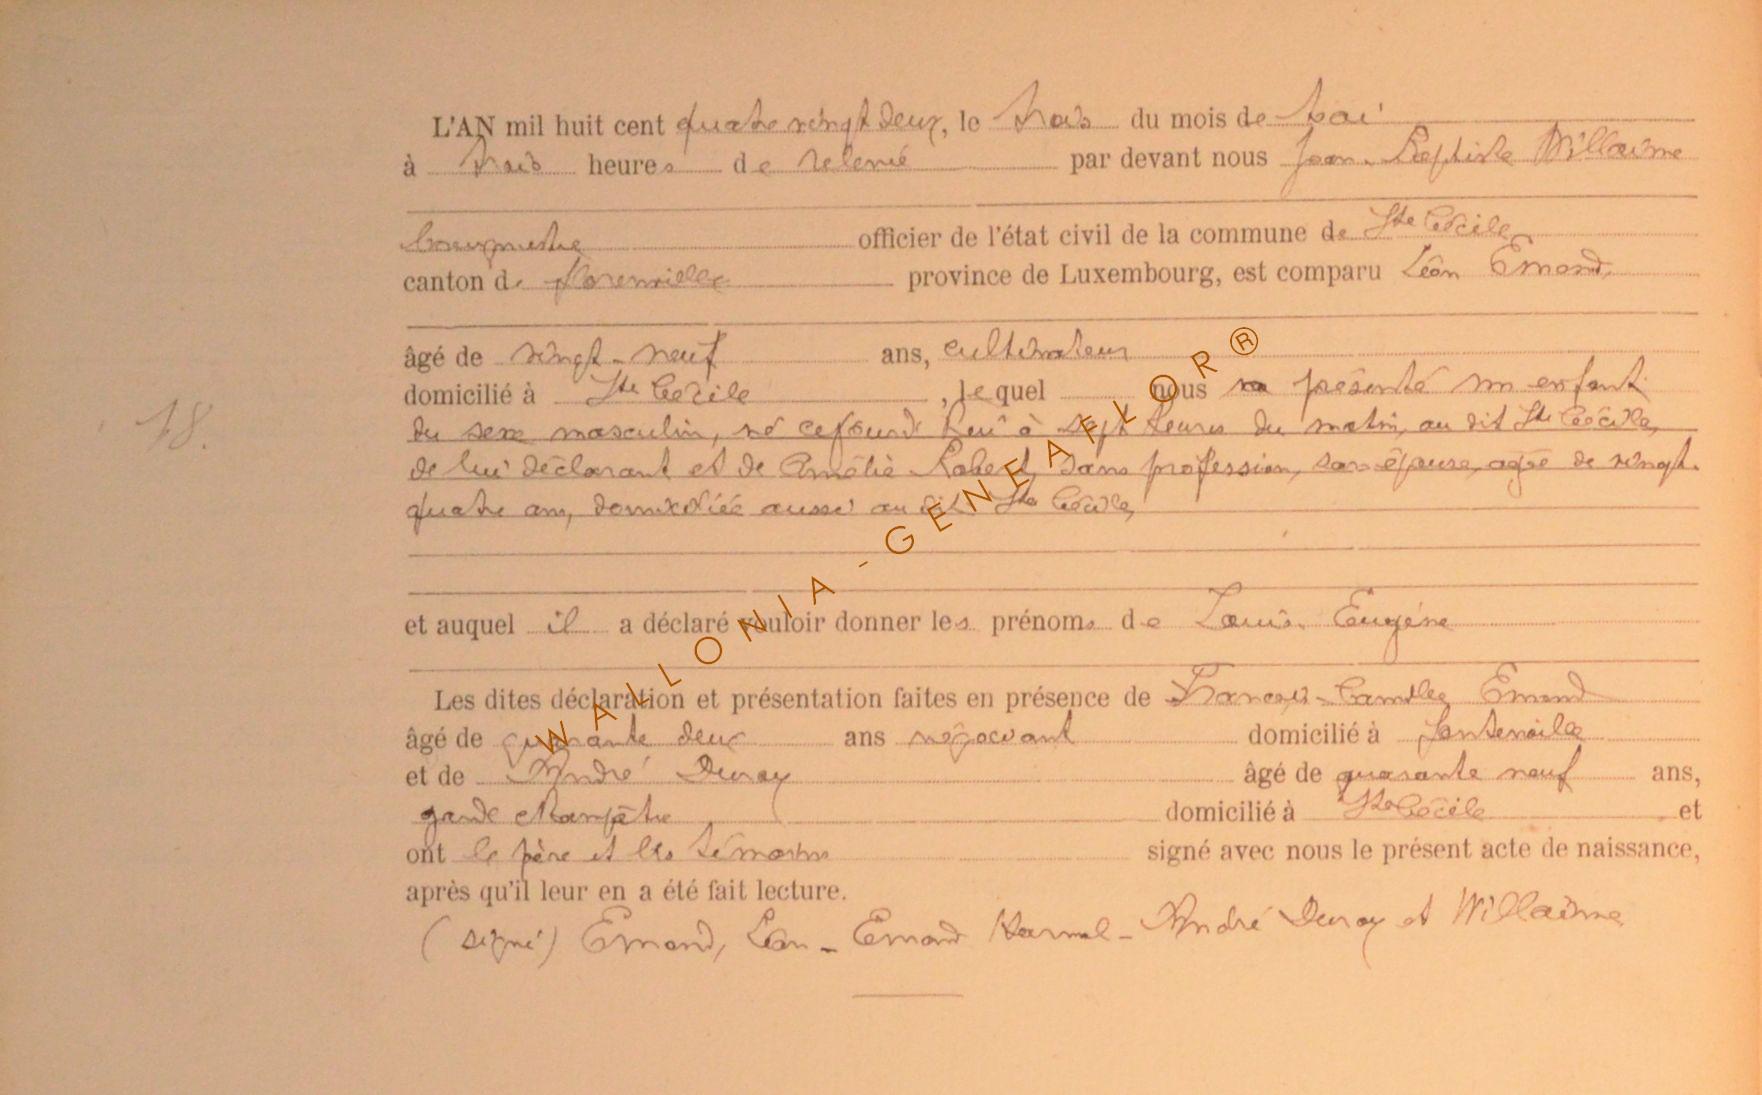 L'AN mil huit cent quatre vingt deux, le trois du mois de Mai
à trois heures de relevée par devant nous Jean-Baptiste Willaime
bourgmestre officier de l'état civil de la commune de Ste Cécile
canton de Florenville province de Luxembourg, est comparu Léon Emond,
âgé de vingt-neuf ans, cultivateur
domicilié à Ste Cécile, lequel nous a présenté un enfant
du sexe masculin, né cejourd'hui à sept heures du matin, au dit Ste Cécile,
de lui déclarant et de Amélie Robert, sans profession, son épouse, agée de vingt-
quatre ans, domiciliée aussi au dit Ste Cécile,
et auquel il a déclaré vouloir donner les prénoms de Louis-Eugène
Les dites déclaration et présentation faites en présence de François-Camille Emond
âgé de quarante deux ans négociant domicilié à Fontenoille
et de André Duroy âgé de quarante neuf ans,
garde champêtre domicilié à Ste Cécile et
ont le père et les témoins signé avec nous le présent acte de naissance,
après qu'il leur en a été fait lecture.
(signé) Emond, Léon - Emond - André Duroy et Willaime
18.
WALLONIA-GENEAFLOR®